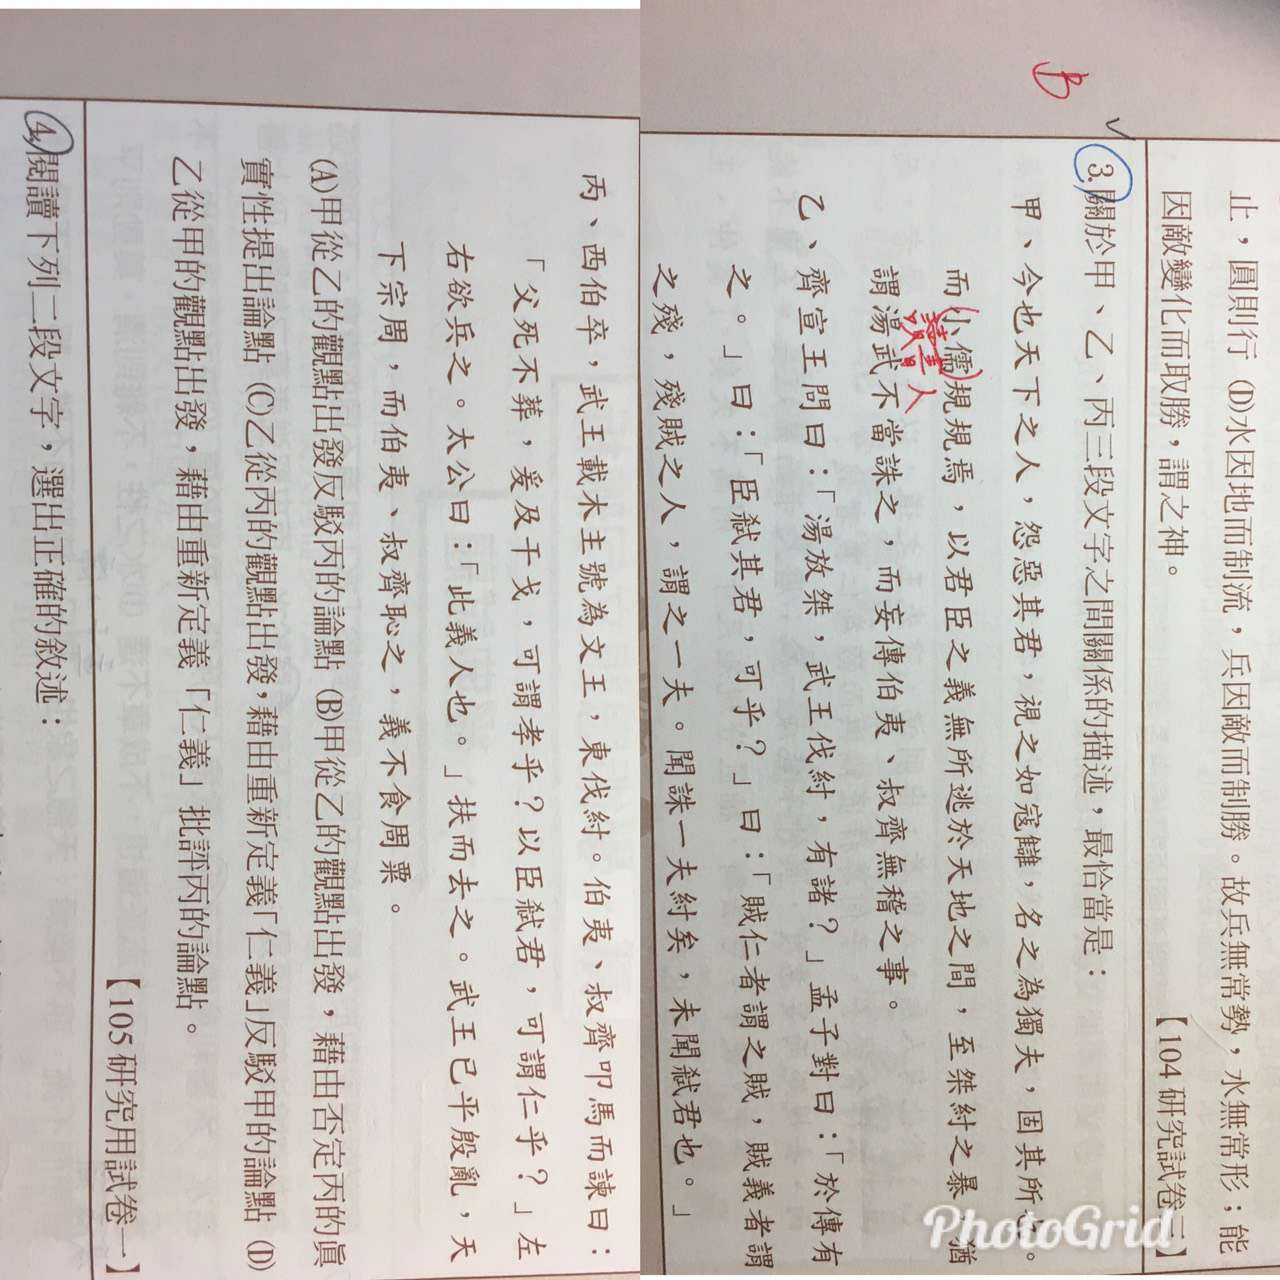 止，圓則行 (D)水因地而制流，兵因敵而制勝。故兵無常勢，水無常形；能
因敵變化而取勝，謂之神。
【104研究試卷二】
B
3.關於甲、乙、丙三段文字之間關係的描述，最恰當是：
甲、今也天下之人，怨惡其君，視之如寇讎，名之為獨夫，固其所
而小儒規規焉，以君臣之義無所逃於天地之間，至桀紂之暴，猶
人
謂湯武不當誅之，而妄傳伯夷、叔齊無稽之事。
乙、齊宣王問曰：「湯放桀，武王伐紂，有諸？」孟子對曰：「於傳有
之。」曰：「臣弒其君，可乎？」曰：「賊仁者謂之賊，賊義者謂
之殘，殘賊之人，謂之一夫。聞誅一夫紂矣，未聞弒君也。」
丙、西伯卒，武王載木主號為文王，東伐紂。伯夷、叔齊叩馬而諫曰：
「父死不葬，爰及干戈，可謂孝乎？以臣弒君，可謂仁乎？」左
右欲兵之。太公曰：「此義人也。」扶而去之。武王已平殷亂，天
下宗周，而伯夷、叔齊恥之，義不食周粟。
(A)甲從乙的觀點出發反駁丙的論點 (B)甲從乙的觀點出發，藉由否定丙的真
實性提出論點 (C)乙從丙的觀點出發，藉由重新定義「仁義」反駁甲的論點 (D)
乙從甲的觀點出發，藉由重新定義「仁義」批評丙的論點。
【105研究用試卷一】
4.閱讀下列二段文字，選出正確的敘述：
PhotoGrid